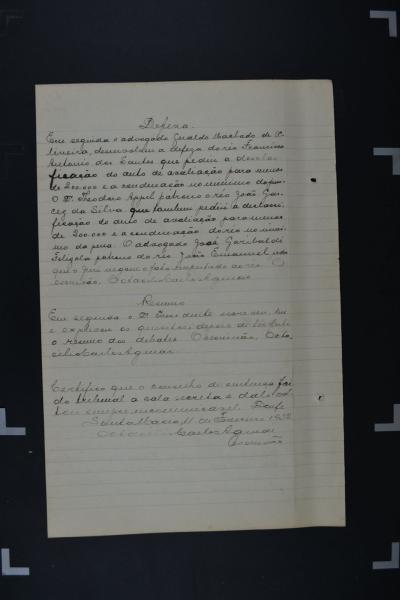 Defeza.
Em seguida o advogado Geraldo Machado de O-
liveira, desenvolveu a defeza do réo Francisco
Antonio dos Santos que pediu a desclassi-
ficação do auto de avaliação para menos
de 200.000 e a condenação no minimo da pena.
O Dr. Theodoro Appel patrono o réo João Gar-
cez da Silva que tambem pediu a declassi-
ficação do auto de avaliação para menos
de 200000 e a condenação do reo no mini-
mo da pena. O advogado José Garibaldi
patrono do réo João Emanuel
que o Juri negasse o facto imputado ao réo. O
escrivão. Octacilio Carlos Aguiar
Resumo
Em seguida o Dr.
e explicou os quesitos depois de ter feito
o resumo dos debates. O escrivão, Octa
cilio Carlos Aguiar.
Certifico que o conselho de sentença foi
do tribunal a sala secreta e
sempre incommunicavel. Dou fé
Santa Maria 11 de
Octacilio Carlos Aguiar
escrivão